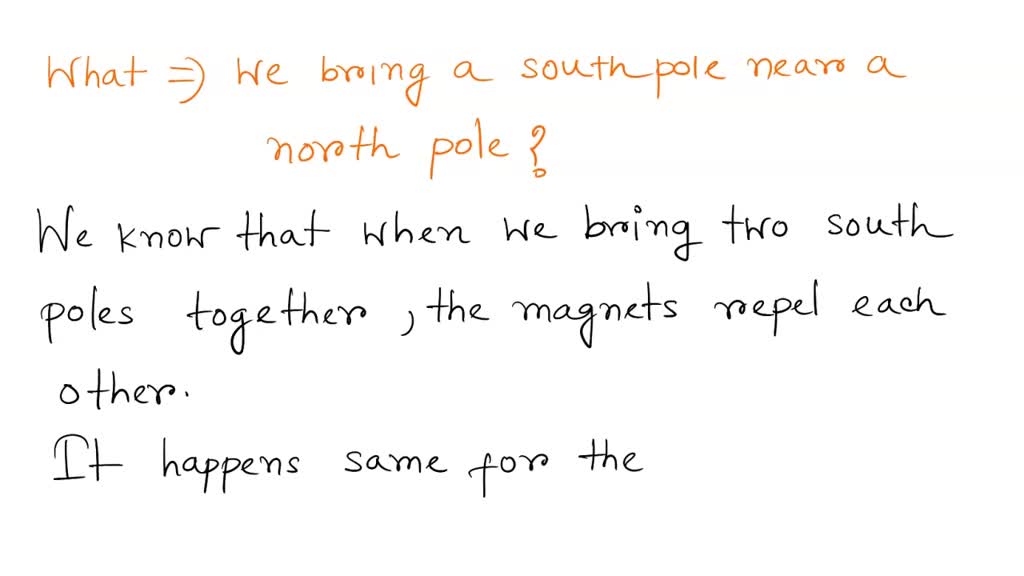 What ⇒ We bring a south pole near a
north pole?
We know that when we bring two south
poles together, the magnets repel each
other.
It happens same for the